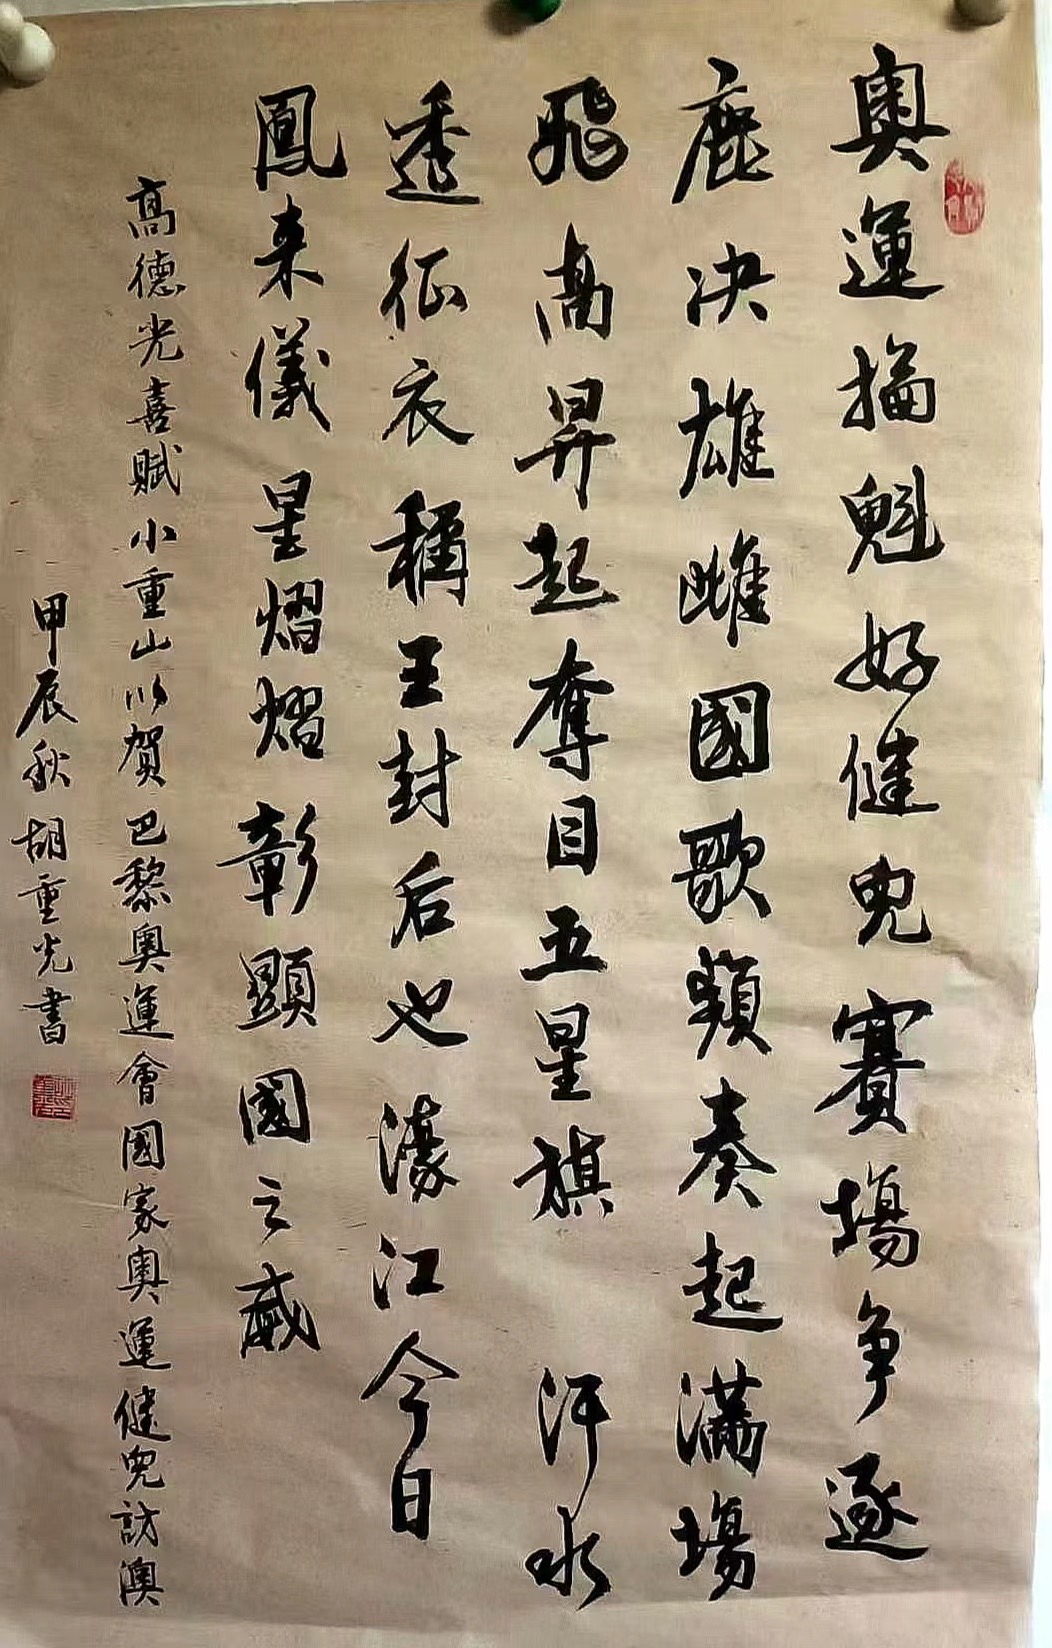 奧運掄魁好健兒賽場争逐
鹿决雄雌國歌頻奏起满場
飛高昇起奪目五星旗 汗水
透征衣稱王封后也濠江今日
鳳来儀星熠熠彰顯國之威
高德光喜賦小重山以賀巴黎奥運會國家奥運健兒訪澳
甲辰秋胡重光書